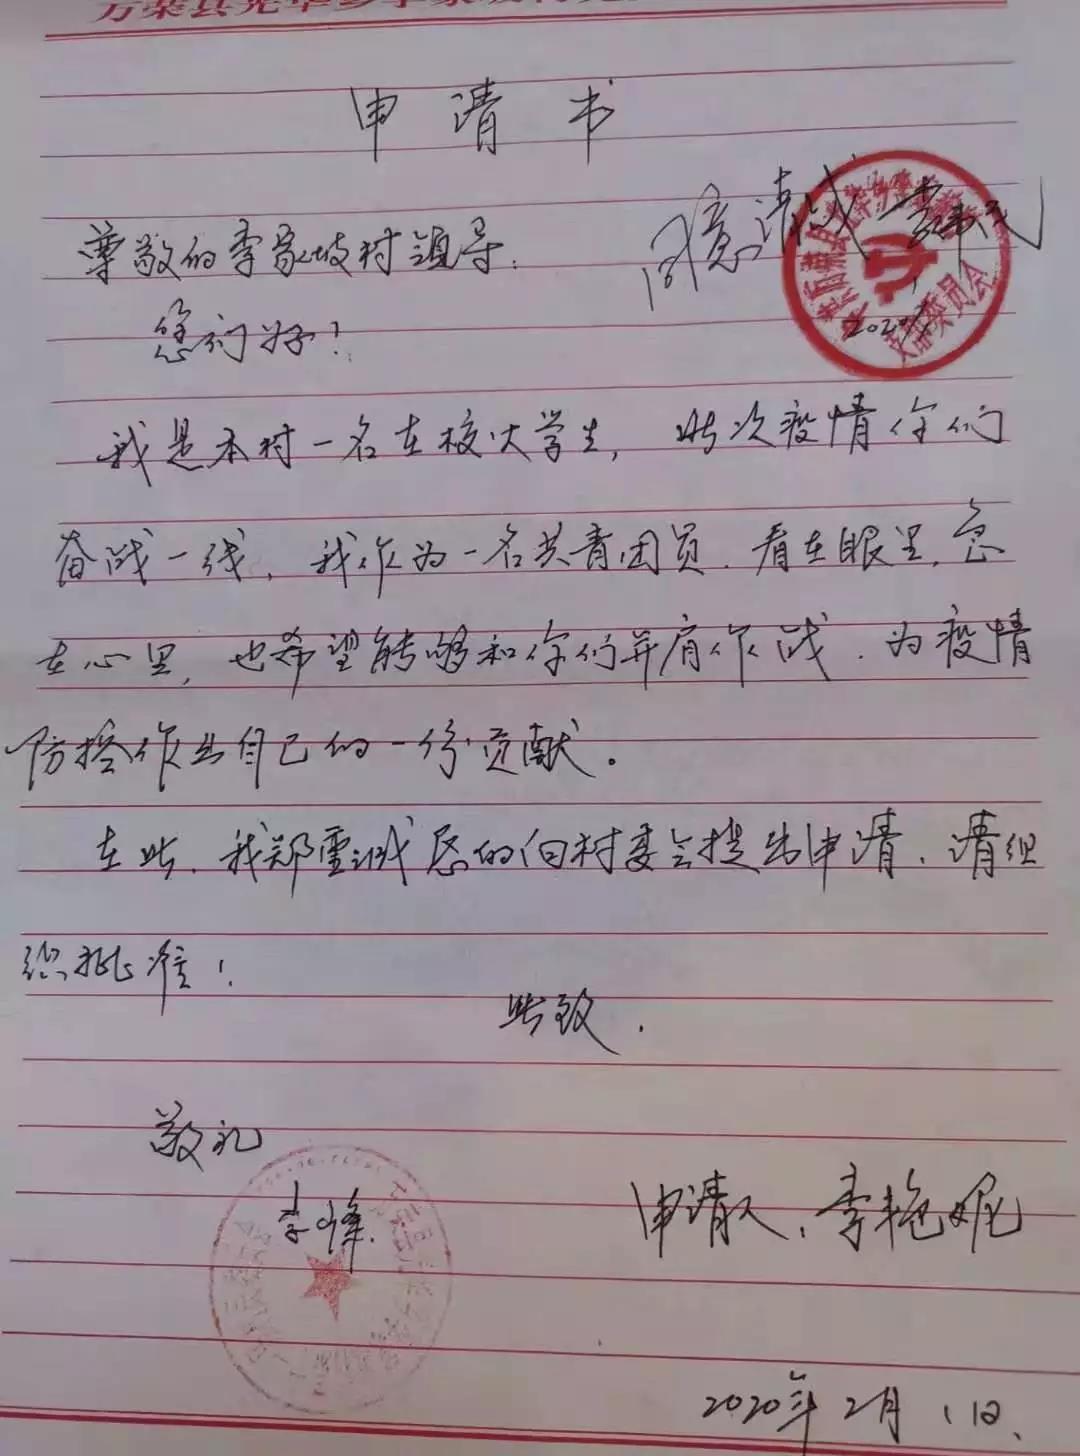 万荣县
申请书
同意请战
尊敬的李家坡村领导:
您们好!
我是本村一名在校大学生,此次疫情你们
奋战一线,我作为一名共青团员.看在眼里,急
在心里,也希望能够和你们并肩作战.为疫情
防控作出自己的一份贡献。
在此.我郑重诚恳的向村委会提出申请,请组
织批准!
此致.
敬礼
李峰.
申请人:李艳妮
2020年2月1日.
支部委员会